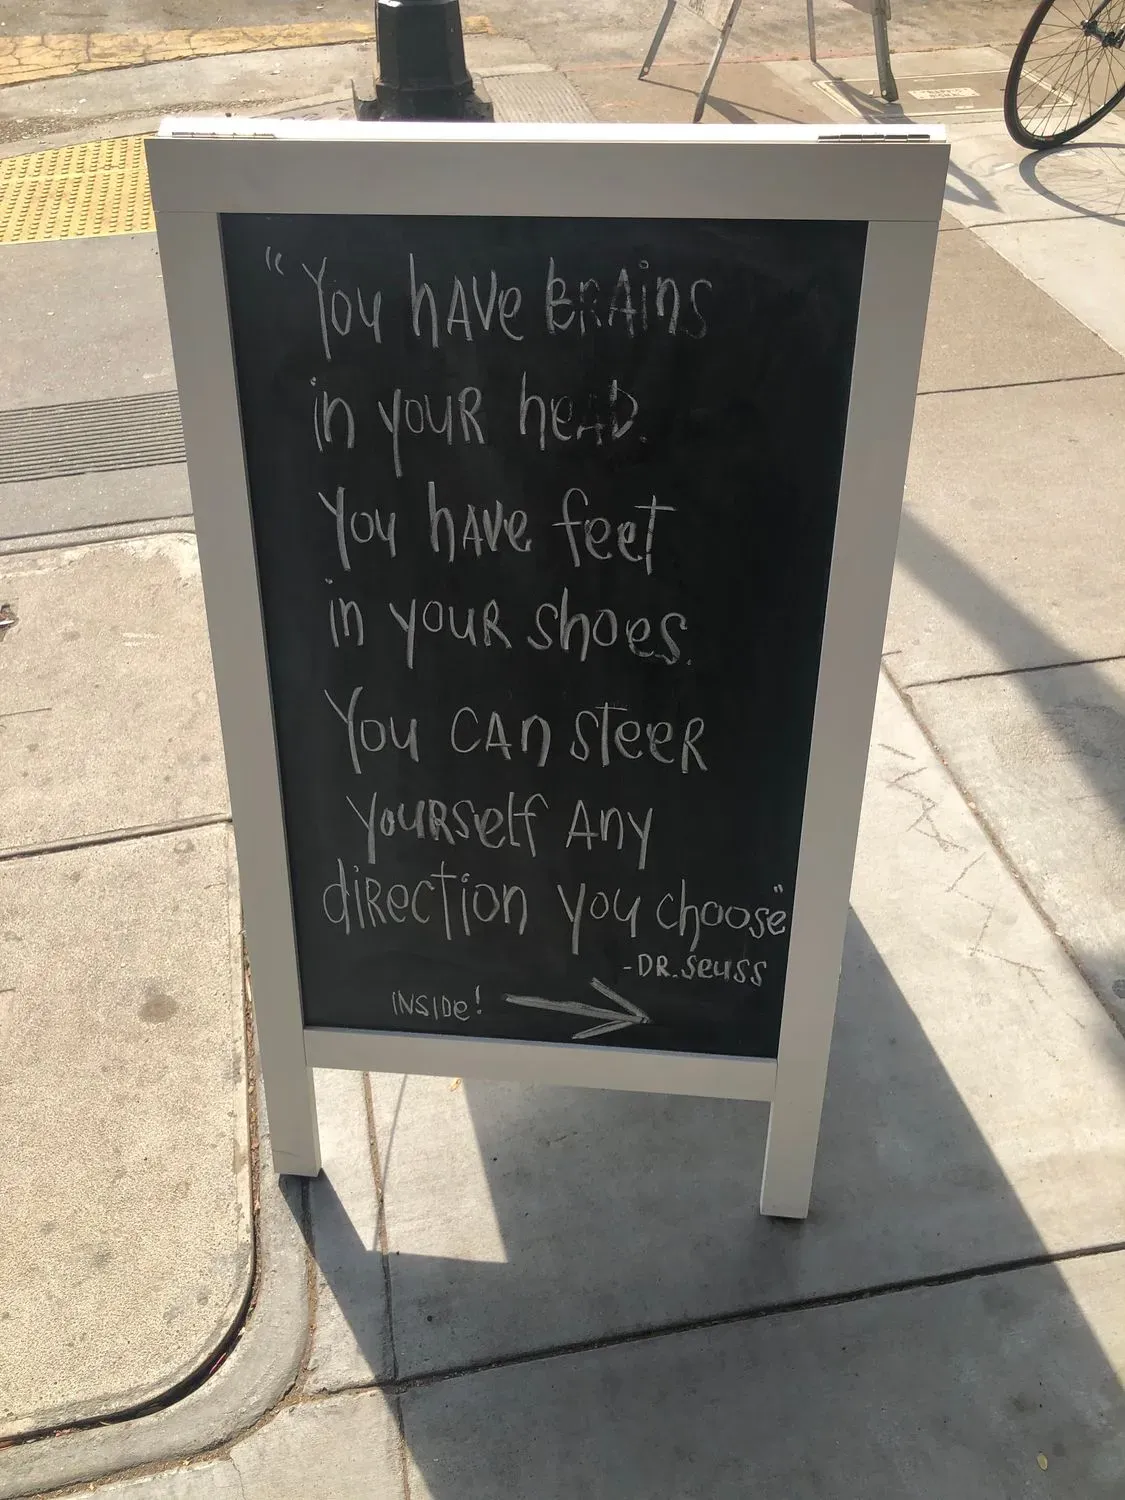 "You have brains
in your head.
You have feet
in your shoes.
You can steer
yourself any
direction you choose"
-DR. Seuss
INSIDE!